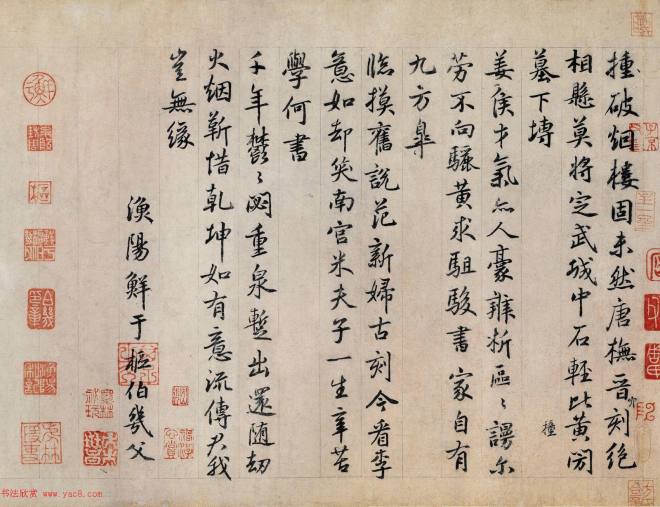 捶破烟樓固未然唐橅晉刻絕
相懸莫將定武城中石輕比黃閍
撞
墓下塼
姜侯才氣亦人豪辨析區〻謾尔
勞不向驪黃求駔駿書家自有
九方皐
臨摸舊說范新婦古刻今看李
意如却笑南宮米夫子一生辛苦
學何書
千年欝〻閟重泉蹔出還隨劫
火烟靳惜乾坤如有意流傳君我
豈無緣
漁陽鮮于樞伯幾父
书法欣赏 www.yac8.com